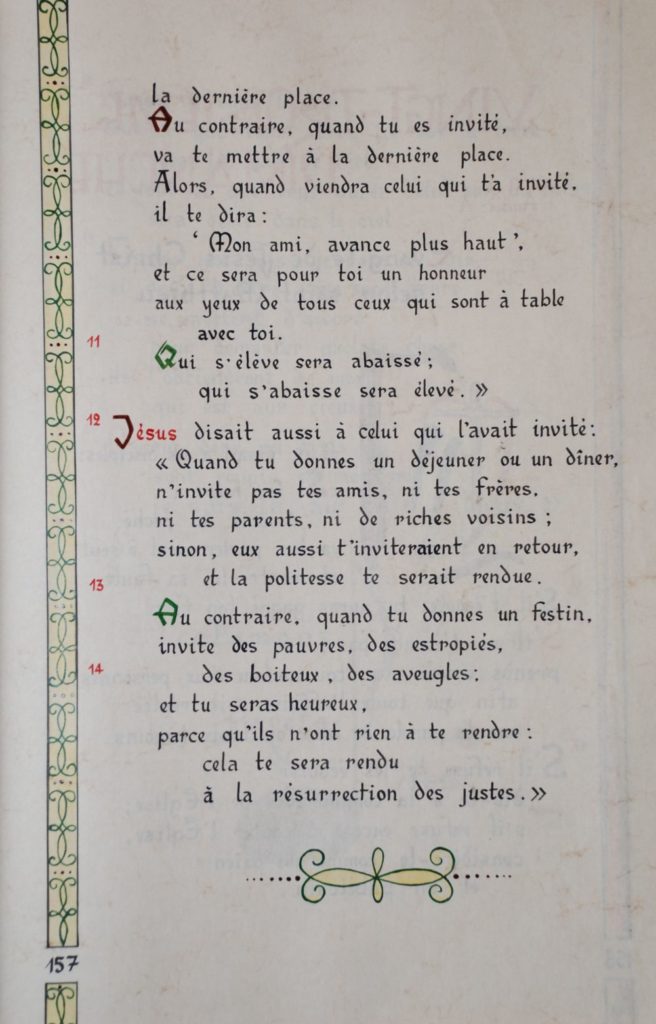 la dernière place.
Au contraire, quand tu es invité,
va te mettre à la dernière place.
Alors, quand viendra celui qui t'a invité,
il te dira :
‘ Mon ami, avance plus haut ’,
et ce sera pour toi un honneur
aux yeux de tous ceux qui sont à table
avec toi.
11 Qui s'élève sera abaissé ;
qui s'abaisse sera élevé. »
12 Jésus disait aussi à celui qui l'avait invité :
« Quand tu donnes un déjeuner ou un dîner,
n'invite pas tes amis, ni tes frères,
ni tes parents, ni de riches voisins ;
sinon, eux aussi t'inviteraient en retour,
et la politesse te serait rendue.
13 Au contraire, quand tu donnes un festin,
invite des pauvres, des estropiés,
14 des boiteux, des aveugles ;
et tu seras heureux,
parce qu'ils n'ont rien à te rendre :
cela te sera rendu
à la résurrection des justes. »
157